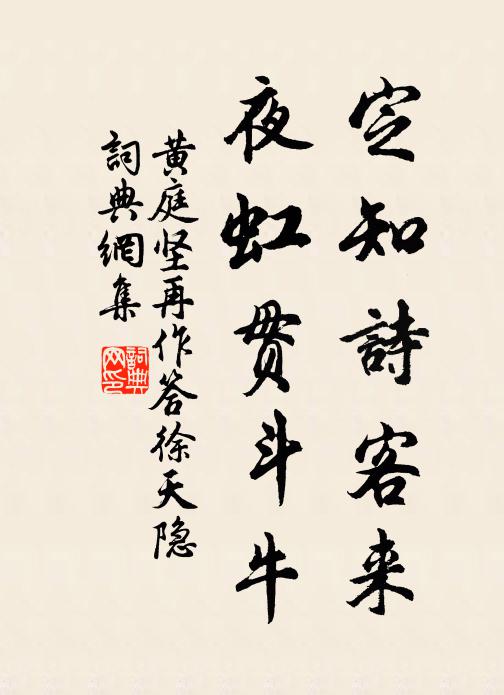 定知詩客来
夜虹贯斗牛
黄庭坚再作答徐天隐
詞典網集
詞典
网印